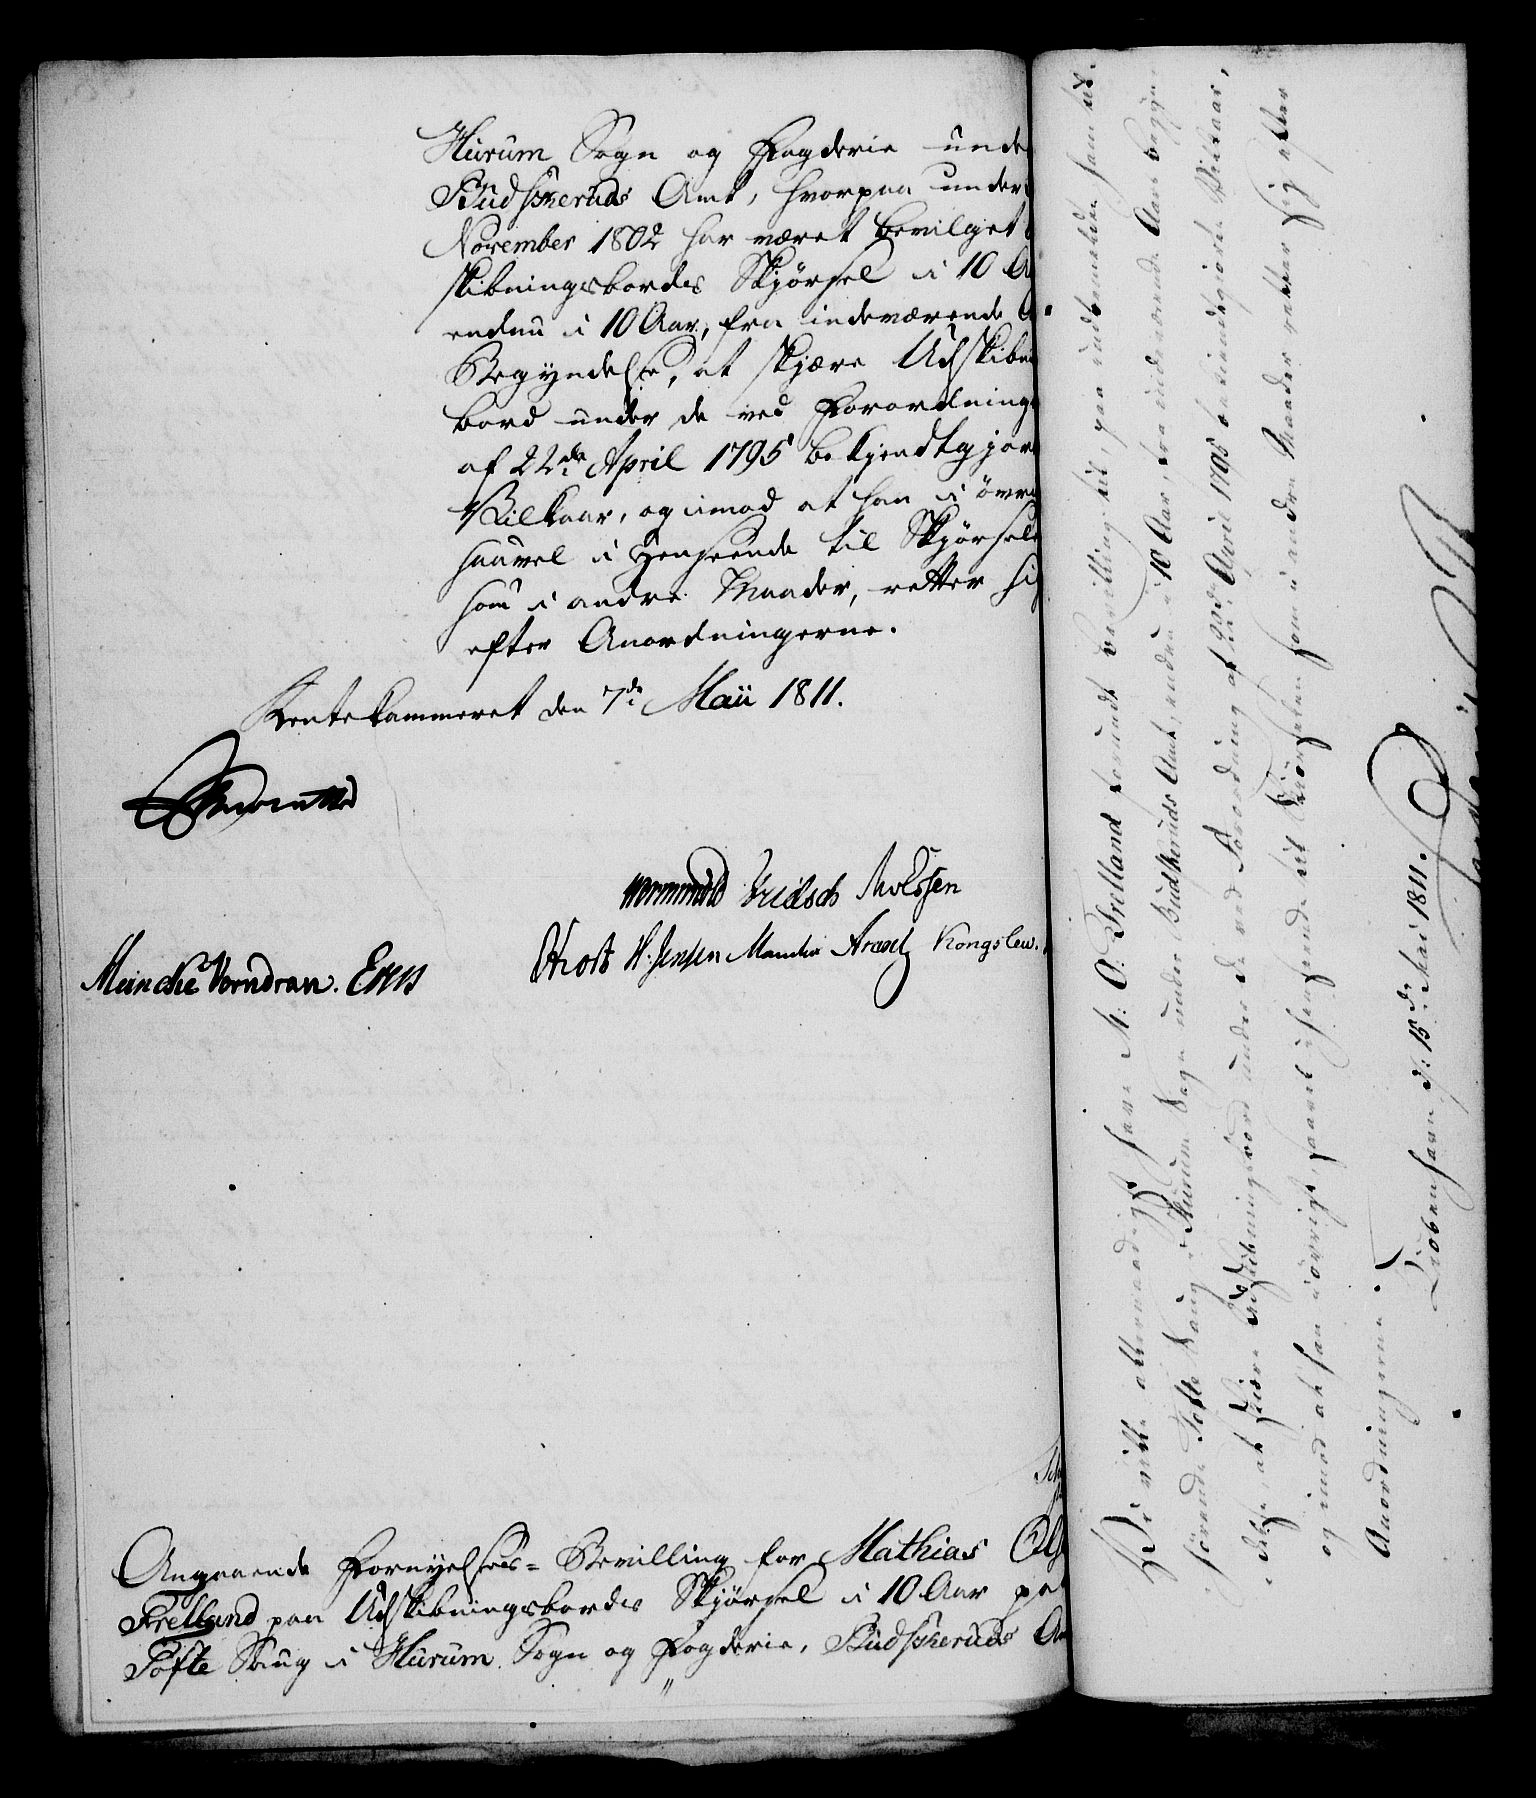 Hurum Sogn og Fogderie unde
Budskeruds Amt, hvorpaa under
November 1802 har været bevilget
skibningsbordes Skjørsel i 10 A
endnu i 10 Aar, fra indeværende A
Begyndelse, at skjære Udskibni
bord under de ved Forordninge
af 22de April 1795 bekjendtgjor
Vilkaar, og imod at han i øvri
saavel i Henseende til Skjørsele
som i andre Maader, retter si
efter Anordningerne.
Rentekammeret den 7de Maii 1811.
Wormskiold Fridsch Moldssen
Hiort H. Jensen Manthe Arentz Kongslew.
Meincke Vorndran.
Angaaende Fornyelses-Bevilling for Mathias Ols
Frelland paa Udskibningsbordes Skjørsel i 10 Aar paa
Tofte Saug i Hurum Sogn og Fogderie, Budskeruds Am
Vi ville allernaadigst have M: O. Frelland forundt Bevilling til, paa endbemeldte ham til-
hørende Tofte Saug i Hurum Sogn under Budskeruds Amt, endnu i 10 Aar, fra indeværende Aars Begyn
delse, at skiære Udskibningsbord under de ved Forordning af 22de April 1795 bekiendtgiorte Vilkaar,
og imod at han i øvrigt, saavel i Henseende til Skiørselen som i andre Maader retter sig efter
Anordningerne.
Kiøbenhavn d: 15de Mai 1811.